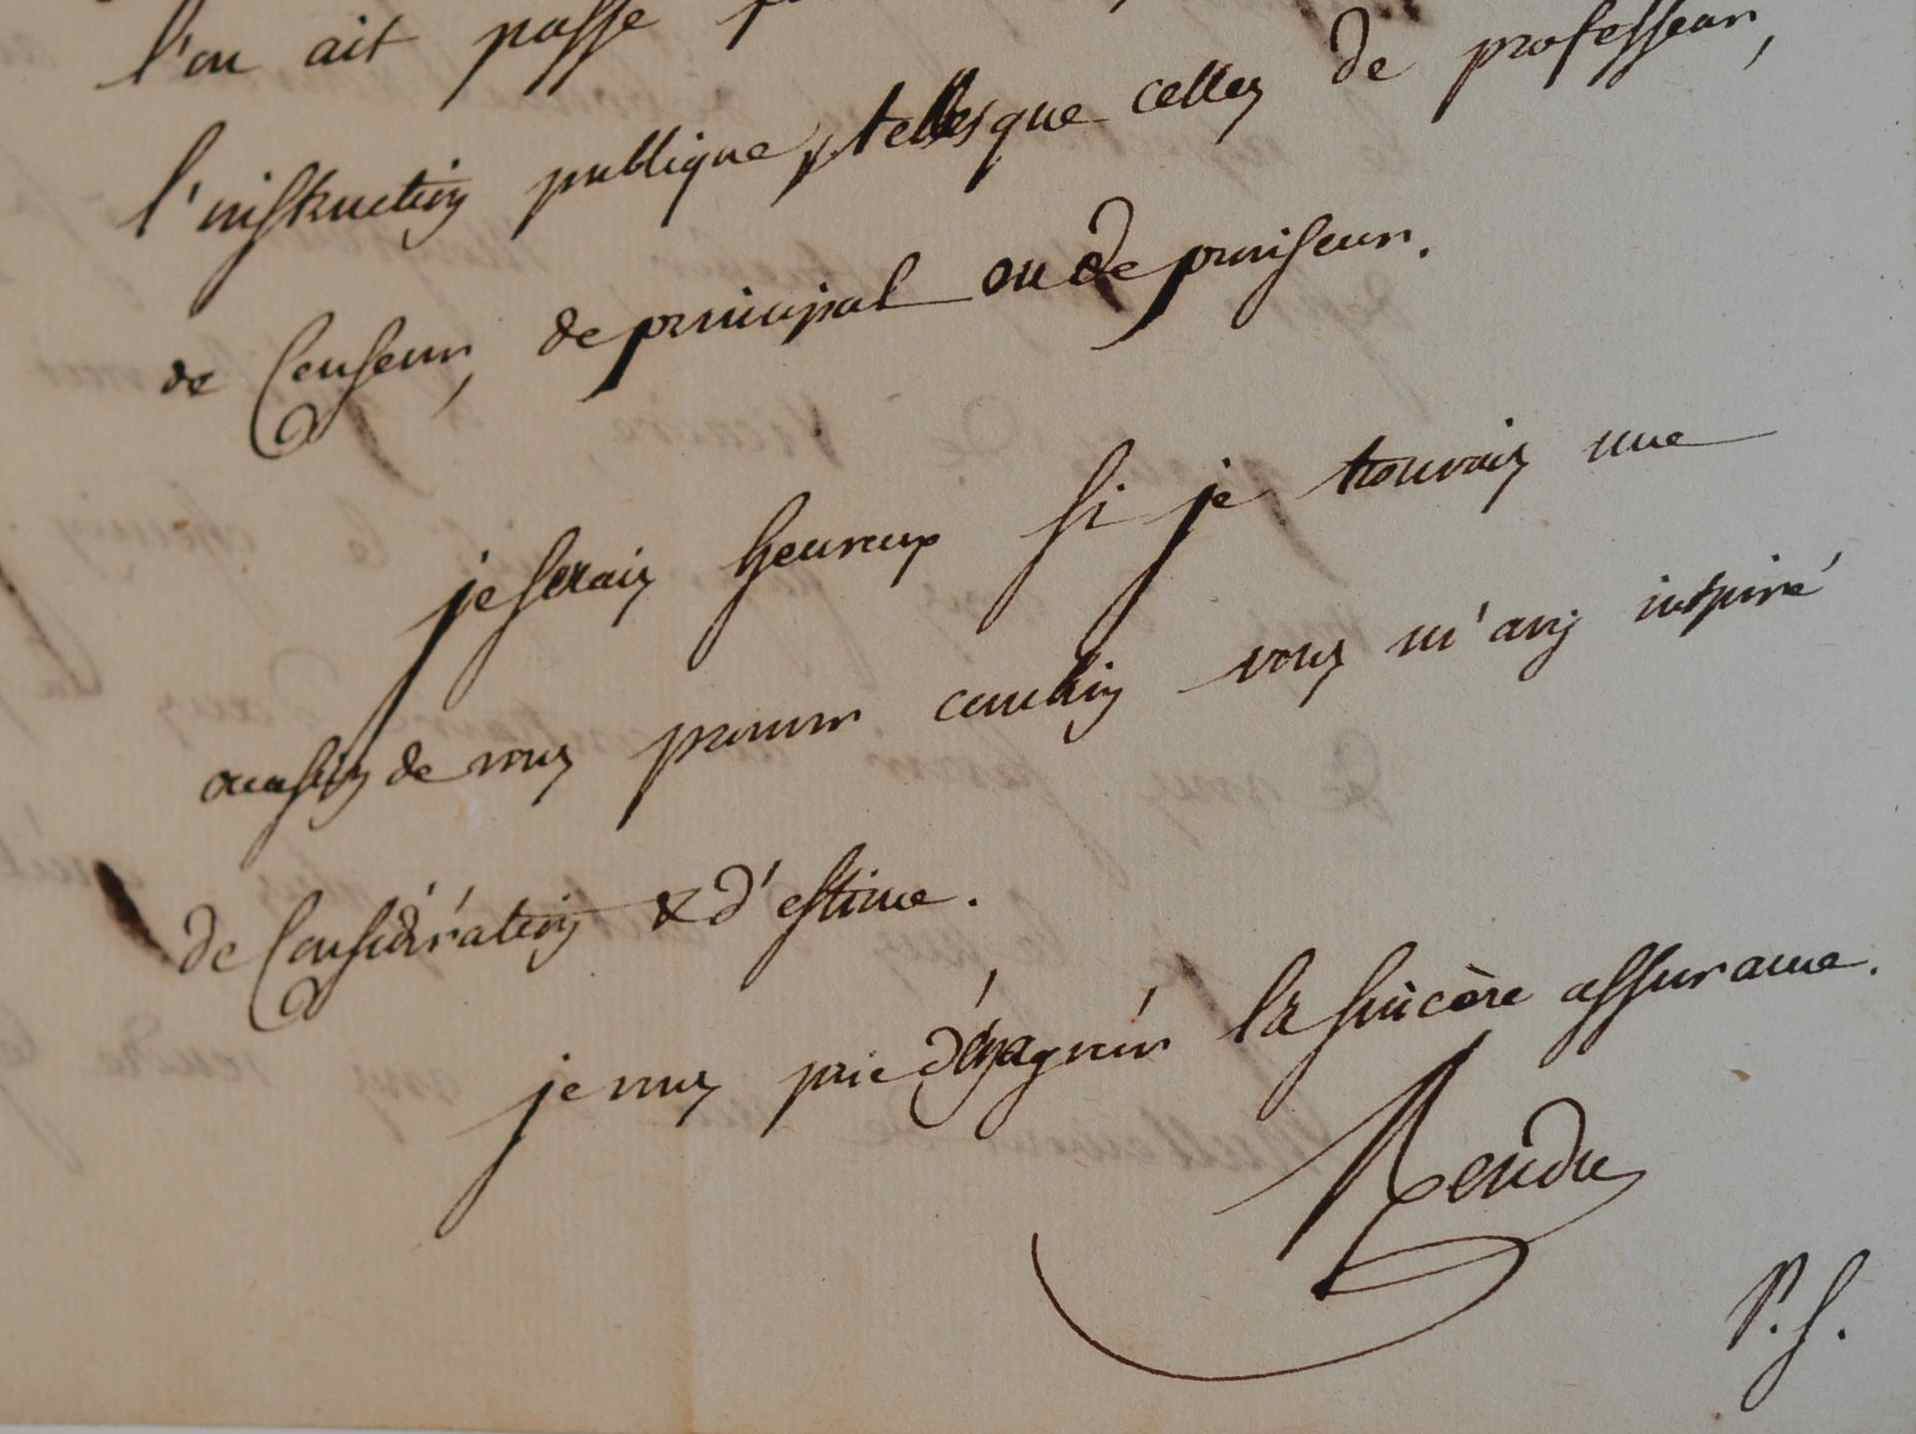 l'on ait passé
l'instruction publique, telles que celles de professeur,
de Censeur, de principal ou de proviseur.
je serais heureux si je trouvais une
occasion de vous prouver combien vous m'avez inspiré
de Considération & d'estime.
je vous prie d'en agréer la sincère assurance.
Rendu
P.S.